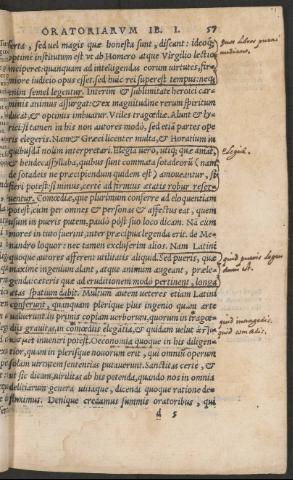 ORATORIARVM LIB. I. 57
serta, sed vel magis quæ honesta sunt, discant: ideoq;
optime institutum est vt ab Homero atque Virgilio lectio
inciperet: quanquam ad intelligendas eorum uirtutes, fir-
more iudicio opus esset: sed huic rei superest tempus: neq;
enim semel legentur. Interim & sublimitate heroici car-
minis animus assurgat: & ex magnitudine rerum spiritum
ducat, & optimis imbuatur. Vtiles tragœdiæ. Alunt & ly-
rici: si tamen in his non autores modò, sed etiā partes ope
ris elegeris. Nam & Græci licenter multa, & Horatium in
quibusdā nolim interpretari. Elegia uerò, utiq; quæ amat,
& hendecasyllaba, quibus sunt commata sotadeorū (nam
de sotadeis ne præcipiendum quidem est) amoueantur, si
fieri potest: si minus, certè ad firmius ætatis robur reser-
uentur. Comœdiæ, quæ plurimum conferre ad eloquentiam
potest, cum per omnes & personas & affectus eat, quem
usum in pueris putem, paulò pòst suo loco dicam. Nā cum
mores in tuto fuerint, inter præcipua legenda erit. de Me-
nandro loquor: nec tamen excluserim alios. Nam Latini
quoque autores afferent utilitatis aliquid. Sed pueris, quæ
maxime ingenium alant, atque animum augeant, præle-
genda: ceteris quæ ad eruditionem modò pertinent, longa
ætas spatium dabit. Multum autem ueteres etiam Latini
conferunt, quanquam plerique plus ingenio quàm arte
ualuerunt: in primis copiam uerborum, quorum in tragœ-
dijs grauitas, in comœdijs elegātia, & quidam uelut
inueniri potest. Oeconomia quoque in his diligen-
tior, quàm in plerisque nouorum erit, qui omnium operum
solam uirtutem sententias putauerunt. Sanctitas certè, &
ut sic dicam, uirilitas ab his petenda, quando nos in omnia
deliciarum genera uitiaque, dicendi quoque ratione de-
fluximus. Denique credamus summis oratoribus, qui
d 5
quos libros pueri
Elegia.
quid pueris legen
dum sit.
quid in tragœdis,
quid comœdis.